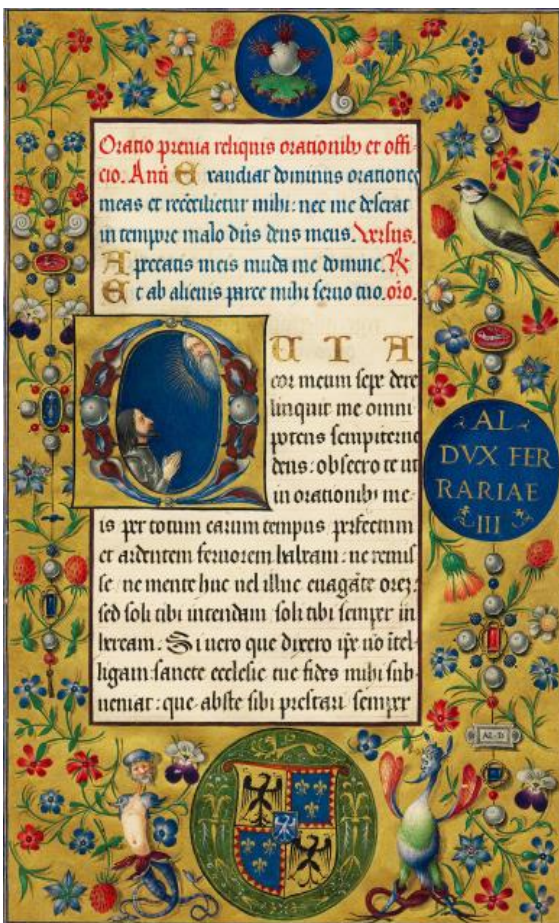 Oratio previa reliquis orationibꝫ et offi-
cio. Anã Exaudiat dominus orationes
meas et recõcilietur mihi: nec me deserat
in tempore malo dñs deus meus. Versus.
A peccatis meis muda me domine. R
Et ab alienis parce mihi servo tuo. orõ.
QUIA
cor meum sepe dere
linquit me omni
potens sempiterne
deus: obsecro te ut
in orationibꝫ me-
is per totum earum tempus perfectum
et ardentem fervorem habeam: ne remis
se ne mente huc vel illuc evagãte orez:
sed soli tibi intendam soli tibi semper in
heream. Si vero que dixero ipe nõ itel-
ligam: sancte ecclesie tue fides mihi sub
veniat: que abste sibi prestari semper
AL
DVX FER
RARIAE
III
AL·D